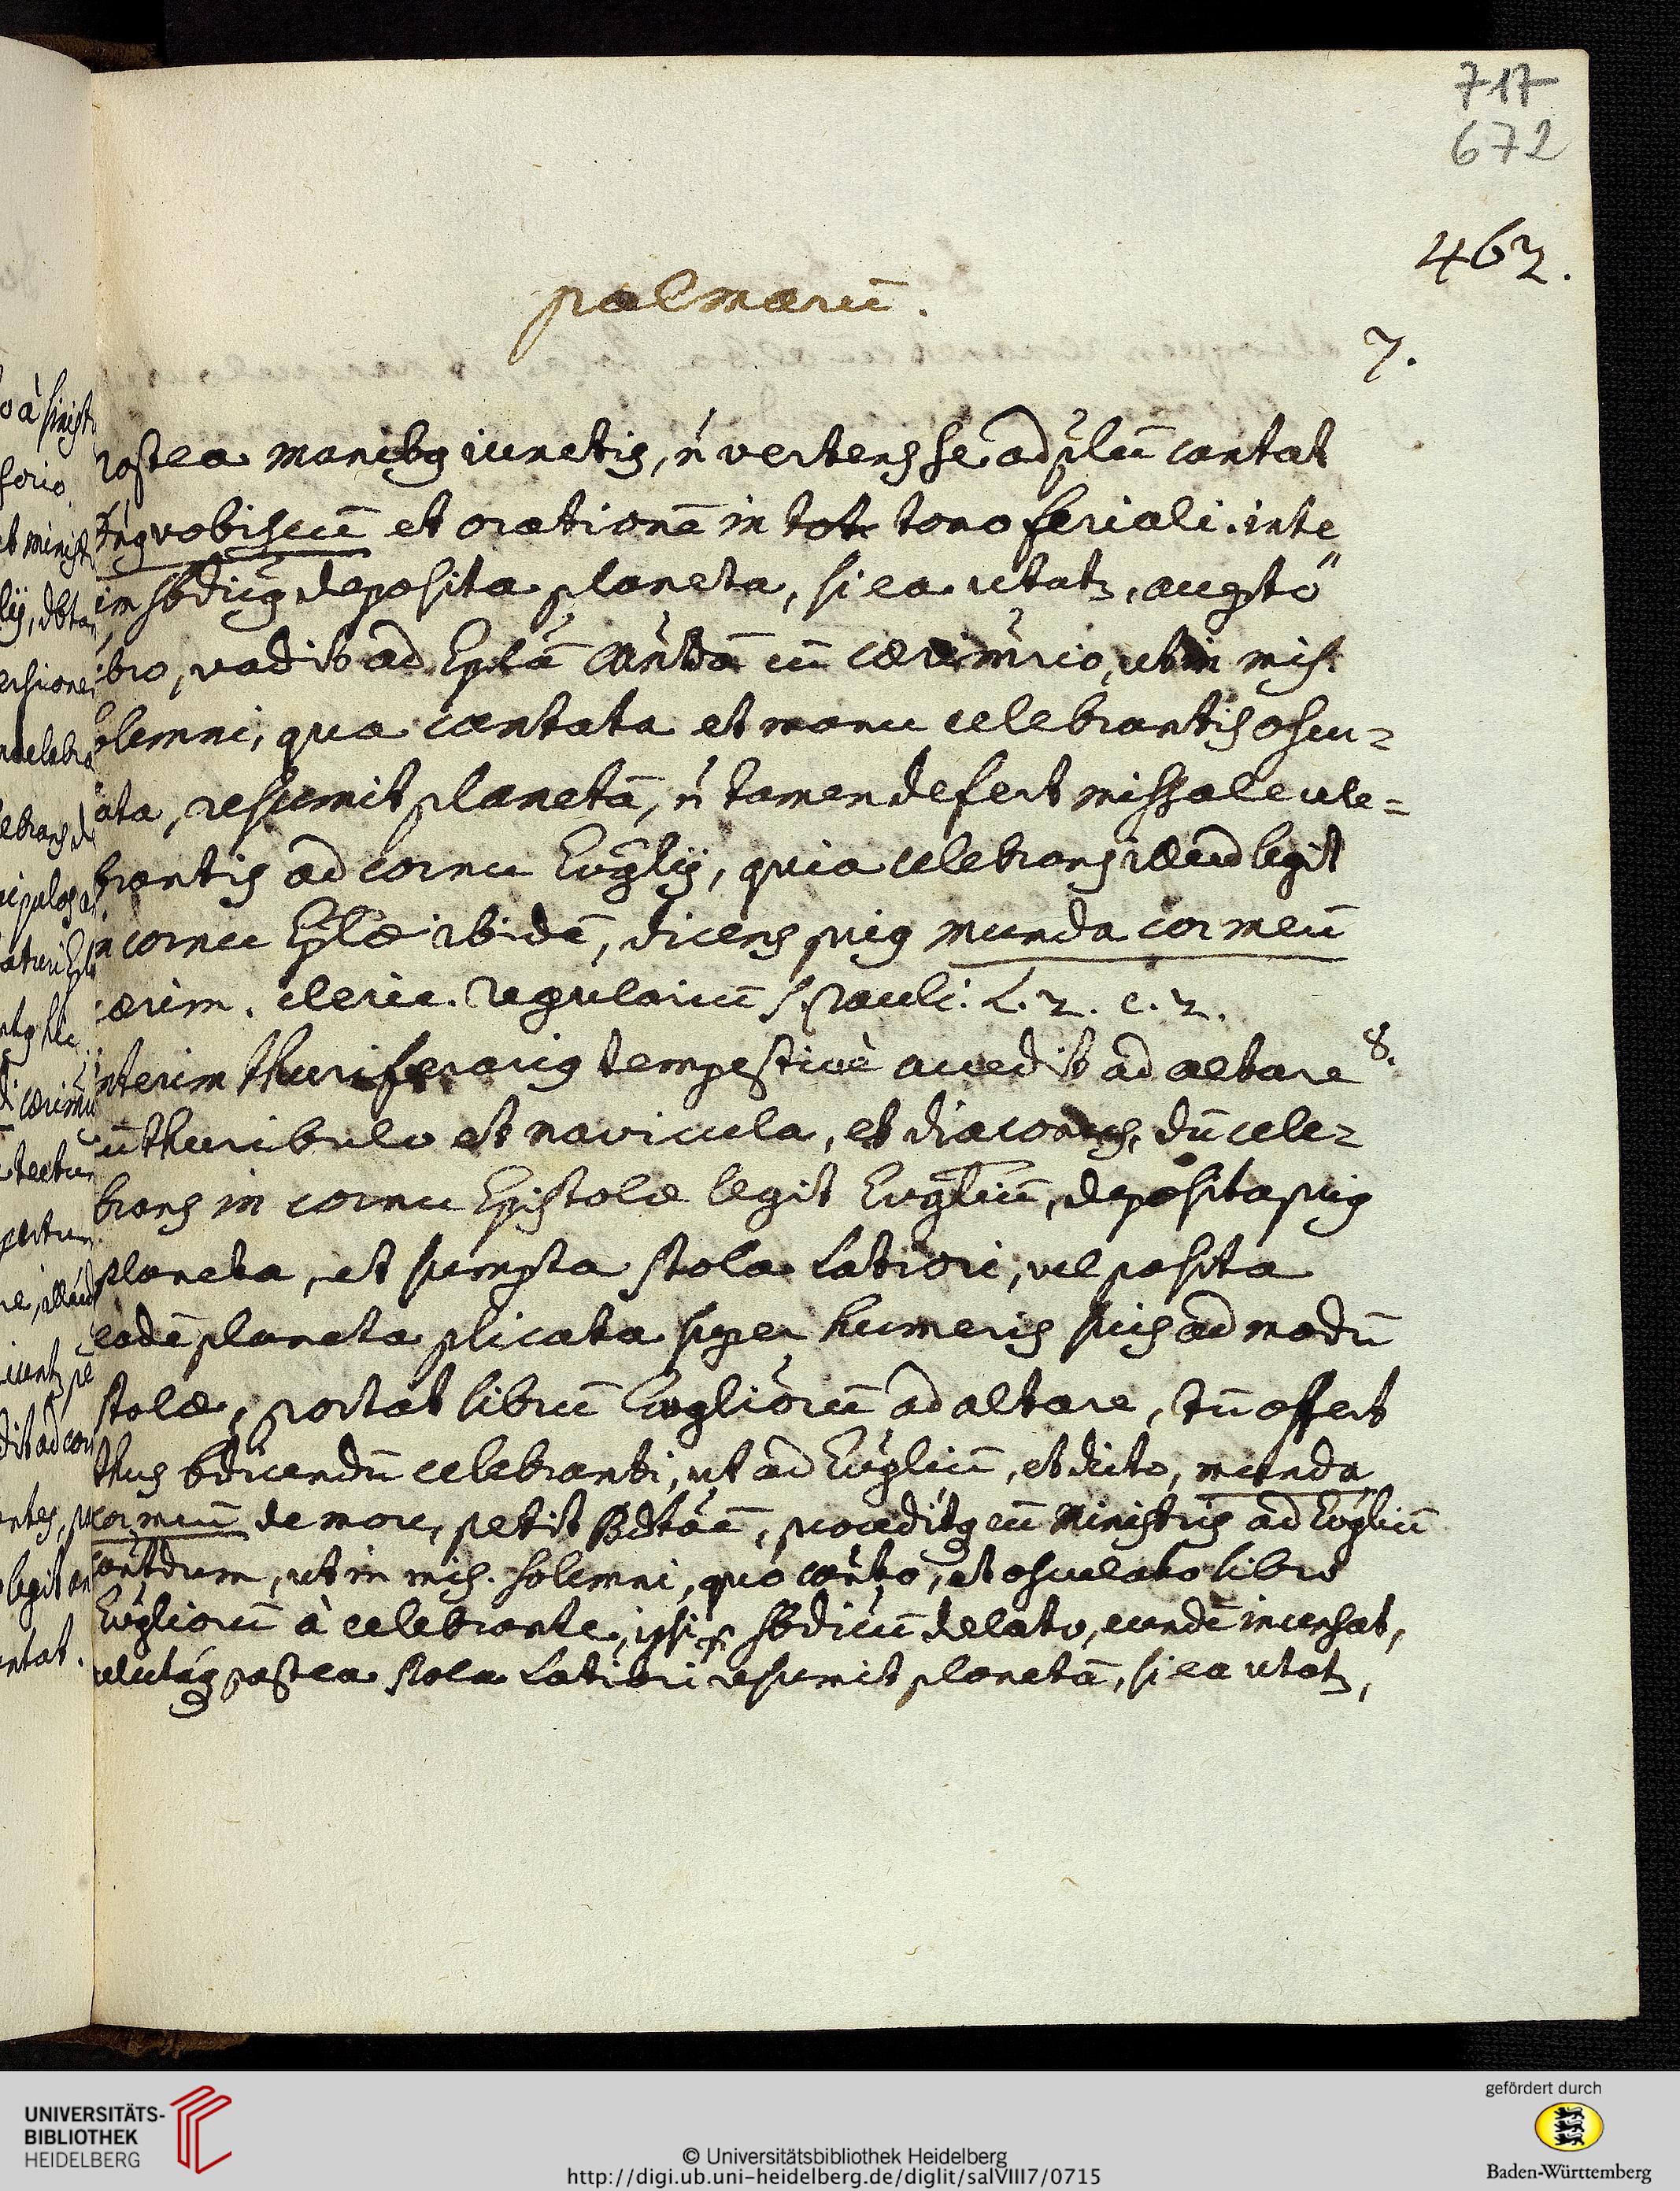 717
672
462.
palmarū.
7.
postea manibg iunctis, ń vertens se ad plm̄ cantat
Dńg vobiscū et orationē in tot tono feriali. inte
im sbdicg deposita planeta, si ea utatz, accepto
ibro, vadit ad Eplā cantdā cū cærimrio, ut in mis.
olemni, qua cantata et manu celebrantis oscu=
ata, resumit planetā, ń tamen defert missale cele=
brantis ad cornu Evglij, quia celebrans illud legit
n cornu Eplæ ibidē, dicens prig munda cor meū
cærim. cleric. regularium S. Pauli. L. 2. c. 2.
8.
nterim thuriferarig tempestivè accedit ad altare
ū thuribulo et navicula, et diaconus, dū cele=
brans in cornu Epistolæ legit Evglium, deposita prig
planeta, et sumpta stola latiori, vel posita
eadē planeta plicata super humeris suis ad modū
stolæ, portat librū Evgliorū ad altare, tū offert
thus bdicendū celebranti, ut ad Evgliū, et dicto, munda
cor meū de more, petit Bdtōē, proceditg cū Ministris ad Evgliū
cantdum, ut in mis. solemni, quo canto, et osculato libro
Evgliorū à celebrante, ipsi p sbdicū delato, eundē incensat,
postea stola latiori resumit planetā, si ea utatz,
o à sinist
ferio.
et minist
lij,
ersione
celebra
ebrans
ipulos
aturi
rtg hic
cærim
tectu
pertu
dit ad cor
legit
ntat.
UNIVERSITÄTS-
BIBLIOTHEK
HEIDELBERG
© Universitätsbibliothek Heidelberg
http://digi.ub.uni-heidelberg.de/diglit/salVIII7/0715
gefördert durch
Baden-Württemberg